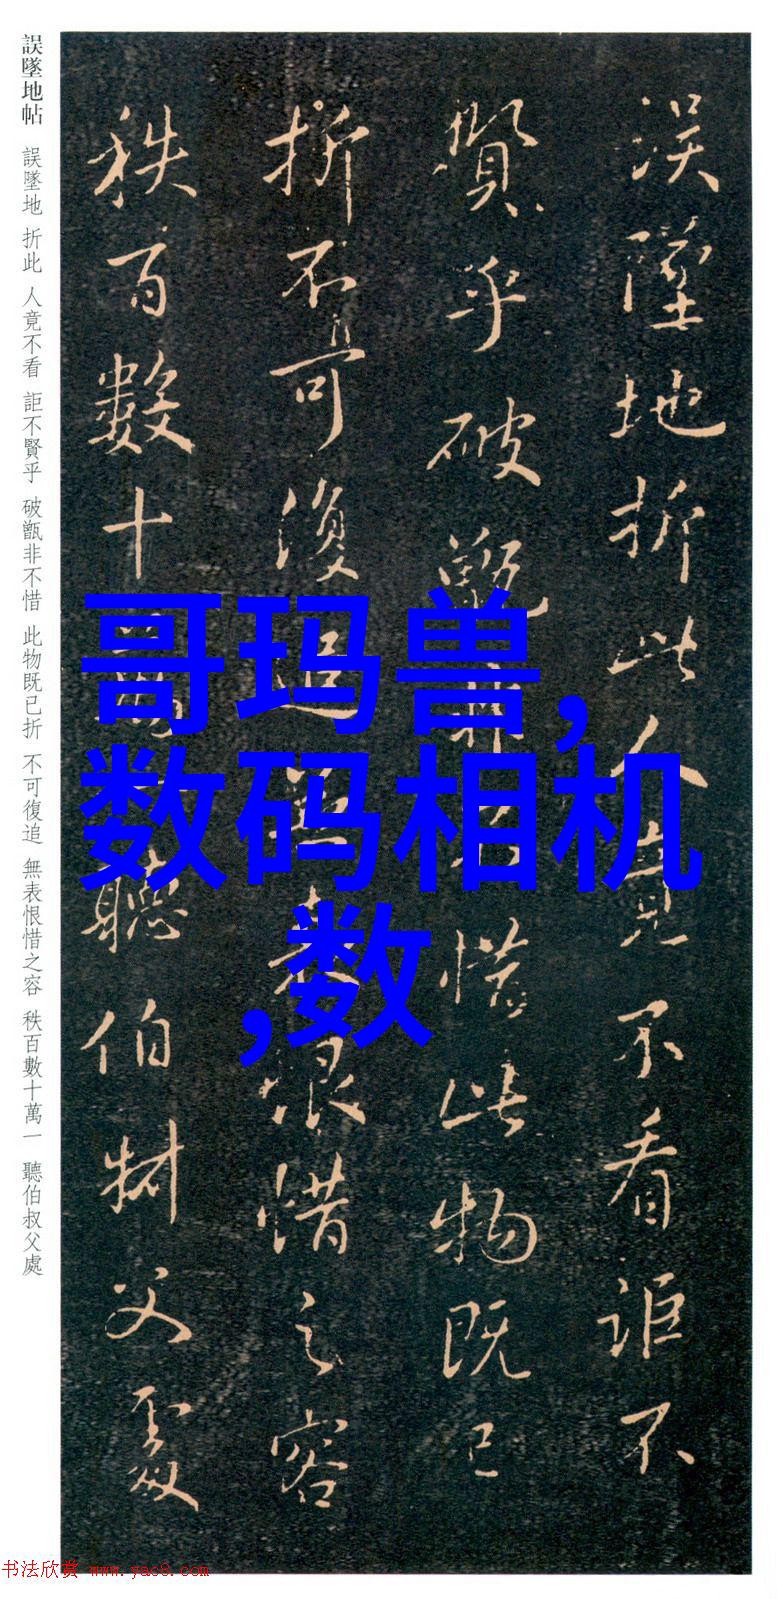 誤墜地帖 誤墜地 折此 人竟不看 詎不賢乎 破甑非不惜 此物既已折 不可復追 無表恨惜之容 秩百數十萬一 聽伯叔父處
误墜地折此人竟不看詎不
賢乎破甑非不惜此物既已
折不可復追無表恨惜之容
秩百數十萬一聽伯叔父處
哥玛兽,
数码相机
,数
书法欣赏 www.yac8.com